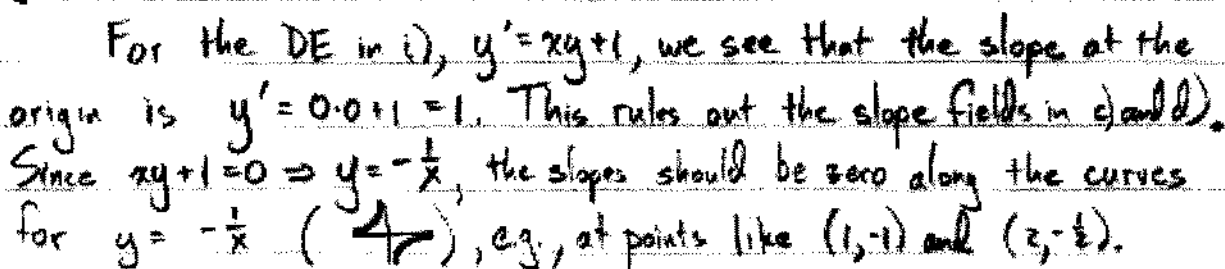 For the DE in i), y' = xy+1, we see that the slope at the
origin is y' = 0·0+1 = 1. This rules out the slope fields in c) and d).
Since xy+1=0 ⇒ y = -1/x, the slopes should be zero along the curves
for y = -1/x ( ), e.g., at points like (1,-1) and (2,-1/2).